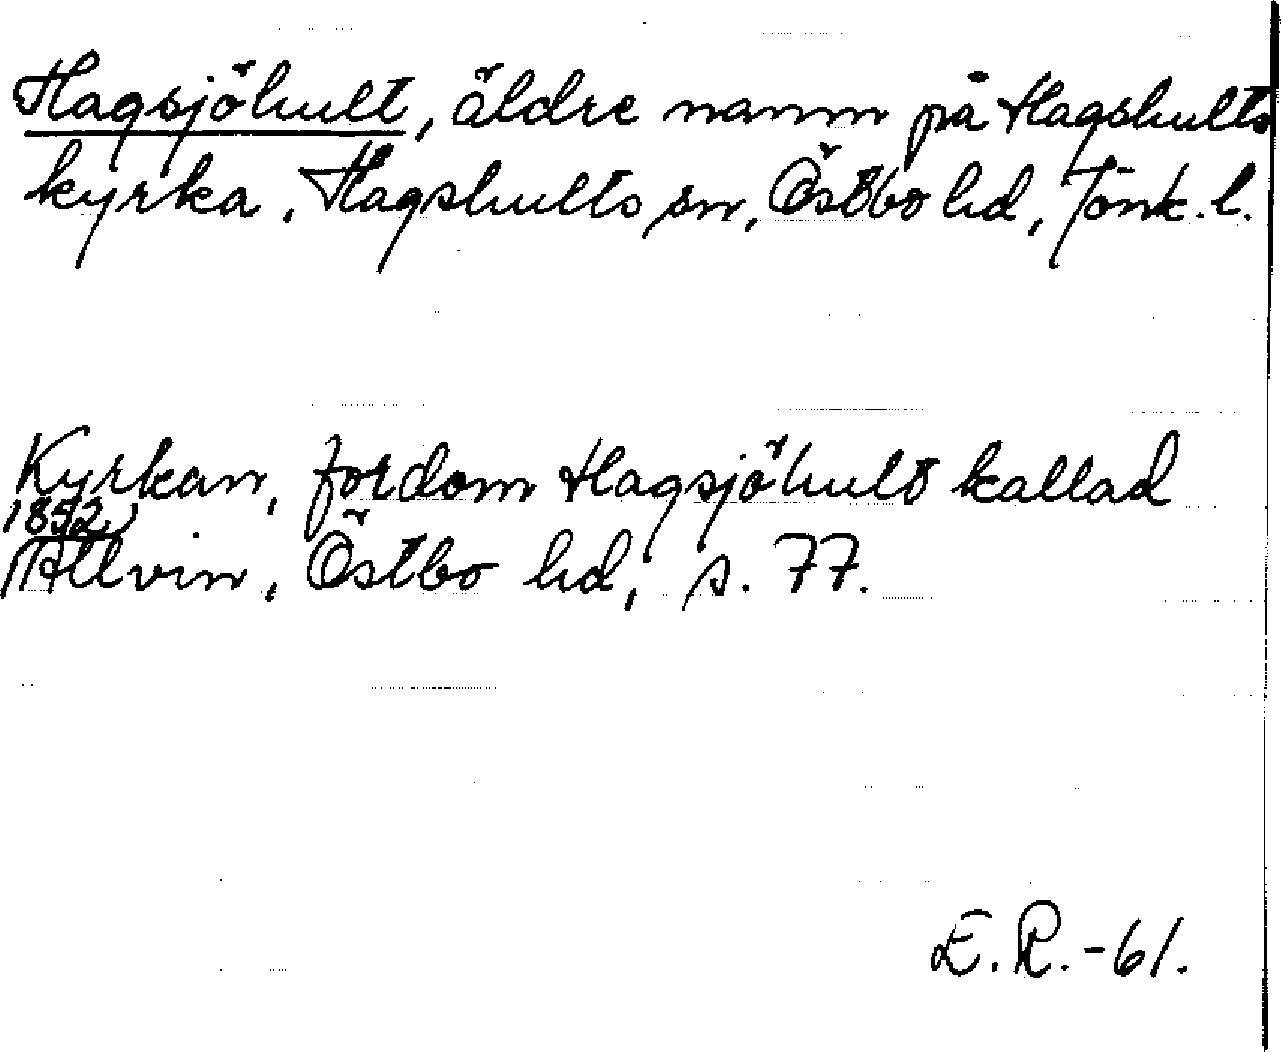 Hagsjöhult, äldre namn på Hagshults
kyrka, Hagshults sn, Östbo hd, Jönk. l.
Kyrkan, fordom Hagsjöhult kallad
1852
Allvin, Östbo hd, s. 77.
E. R. -61.